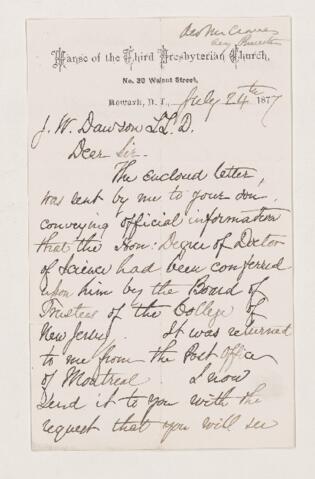 Manse of the Third Presbyterian Church,
No. 20 Walnut Street,
Newark, N. J., July 24th 1877
J. W. Dawson LL.D.
Dear Sir.
The enclosed letter,
was sent by me to your son,
conveying official information
that the Hon: Degree of Doctor
of Science had been conferred
upon him by the Board of
Trustees of the College of
New Jersey. It was returned
to me from the Post Office
of Montreal I now
send it to you with the
request that you will see